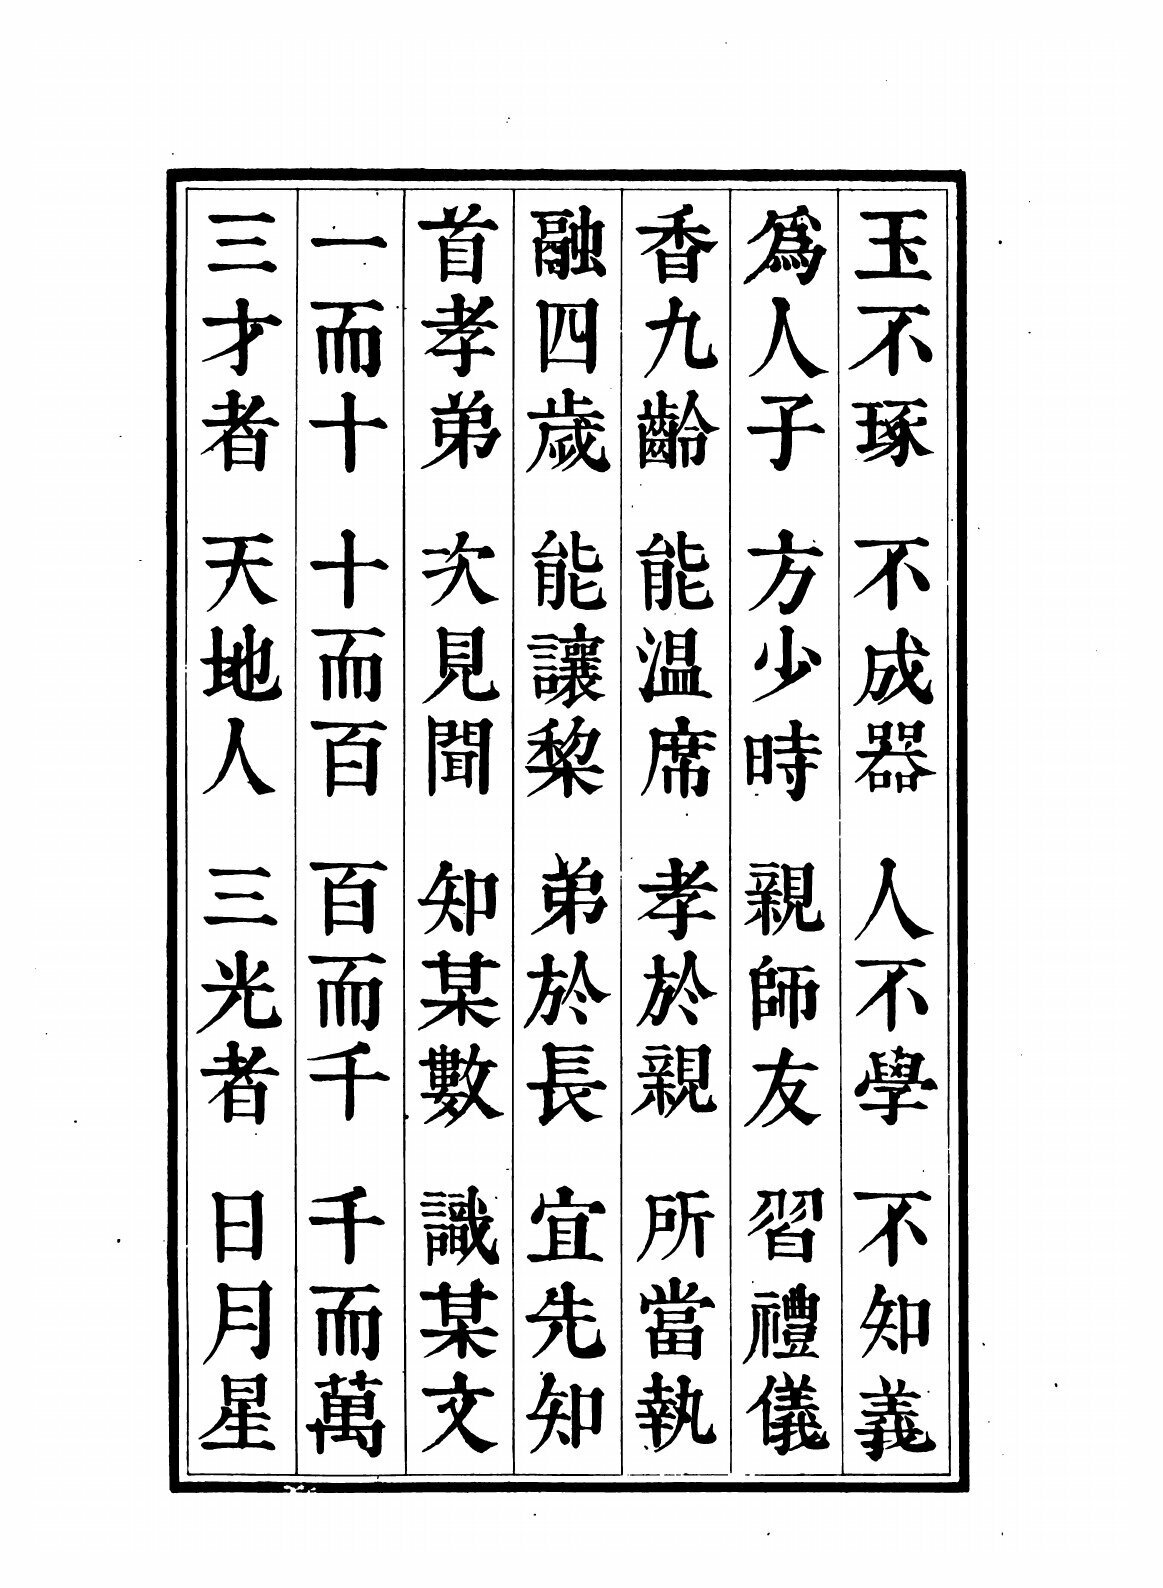 玉不琢 不成器 人不學 不知義
爲人子 方少時 親師友 習禮儀
香九齡 能温席 孝於親 所當執
融四歲 能讓棃 弟於長 宜先知
首孝弟 次見聞 知某數 識某文
一而十 十而百 百而千 千而萬
三才者 天地人 三光者 日月星